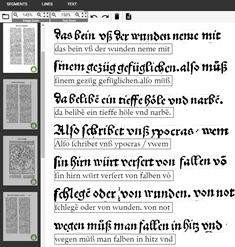 SEGMENTS LINES TEXT
das bein vß der wunden neme mit
das bein vß der wunden neme mit
sinem gezüg gefüglichen. also müß
sinem gezüg gefüglichen. also müß
da belibē ein tieffe höle vnd narbē.
da belibē ein tieffe höle vnd narbē.
Also schribet vnß ypocras / wem
Also schribet vnß ypocras / wem
sin hirn würt versert von fallen võ
sin hirn würt versert von fallen võ
schlegē oder von wunden. von not
schlegē oder von wunden. von not
wegen müß man salben in hitz vnd
wegen müß man salben in hitz vnd